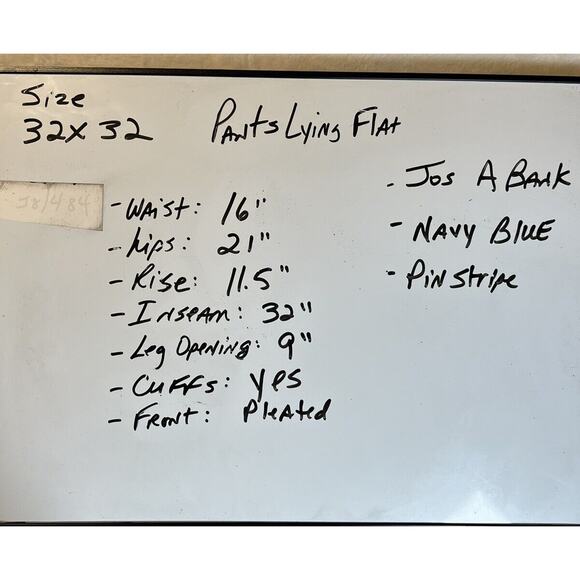 Size
32x32
Pants Lying Flat
J8/484
- Waist: 16"
- hips: 21"
- Rise: 11.5"
- Inseam: 32"
- Leg Opening: 9"
- Cuffs: yes
- Front: Pleated
- Jos A Bank
- Navy Blue
- Pinstripe